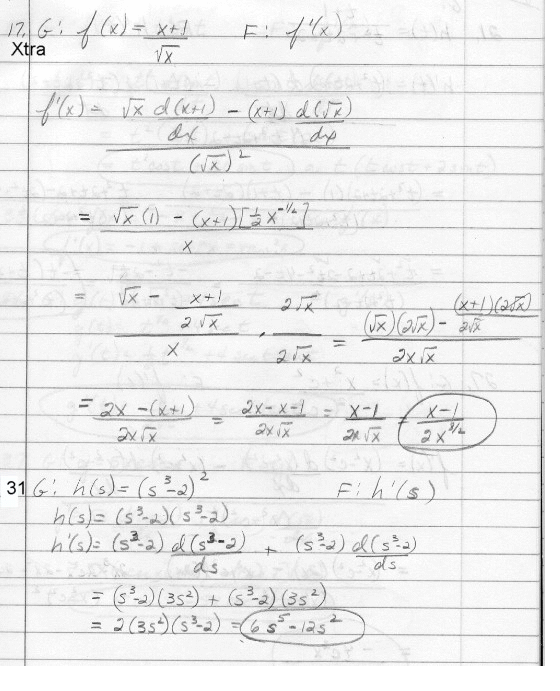 17. G: f(x) = (x+1)/√x F: f'(x)
Xtra
f'(x) = [√x d(x+1)/dx - (x+1) d(√x)/dx] / (√x)²
= [√x (1) - (x+1)[½ x^(-1/2)]] / x
= [√x - (x+1)/(2√x)] / x · 2√x/2√x = [(√x)(2√x) - (x+1)(2√x)/(2√x)] / 2x√x
= [2x - (x+1)] / 2x√x = (2x-x-1)/(2x√x) = (x-1)/(2x√x) = (x-1)/(2x^(3/2))
31 G: h(s) = (s³-2)² F: h'(s)
h(s) = (s³-2)(s³-2)
h'(s) = (s³-2) d(s³-2)/ds + (s³-2) d(s³-2)/ds
= (s³-2)(3s²) + (s³-2)(3s²)
= 2(3s²)(s³-2) = 6s⁵-12s²